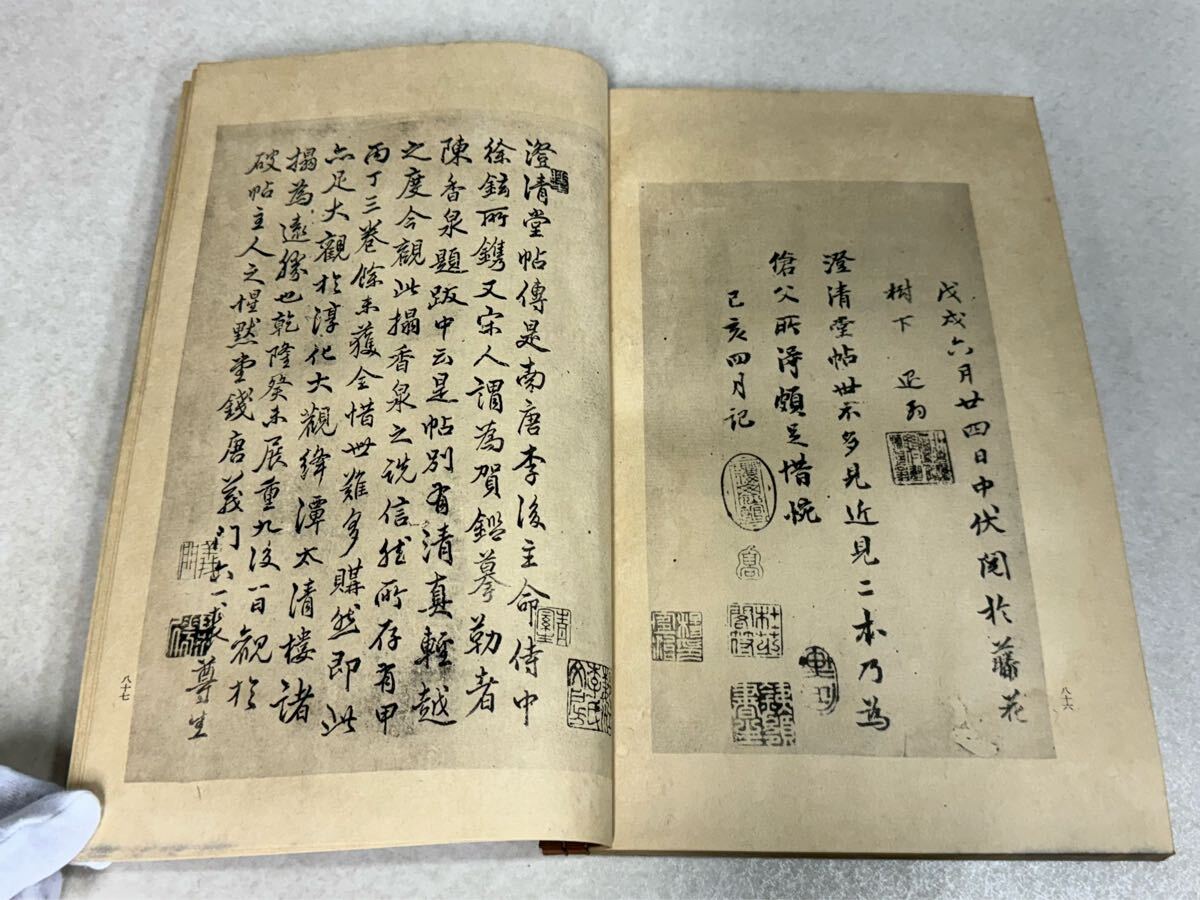 戊戌六月廿四日中伏閱於藤花
樹下
澄清堂帖世不多見近見二本乃為
傖父所得頗足惜惋
己亥四月記
八十六
澄清堂帖傳是南唐李後主命侍中
徐鉉所鐫又宋人謂為賀鑑摹勒者
陳香泉題跋中云是帖別有清真輕越
之度今觀此搨香泉之說信然所存有甲
丙丁三卷餘未獲全惜世難多購然即此
亦足大觀於淳化大觀絳潭太清樓諸
搨為遠勝也乾隆癸未展重九後一日觀於
破帖主人之惺默堂錢唐義門
尊生
八十七